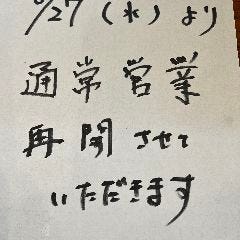 /27(水)より
通常営業
再開させて
いただきます